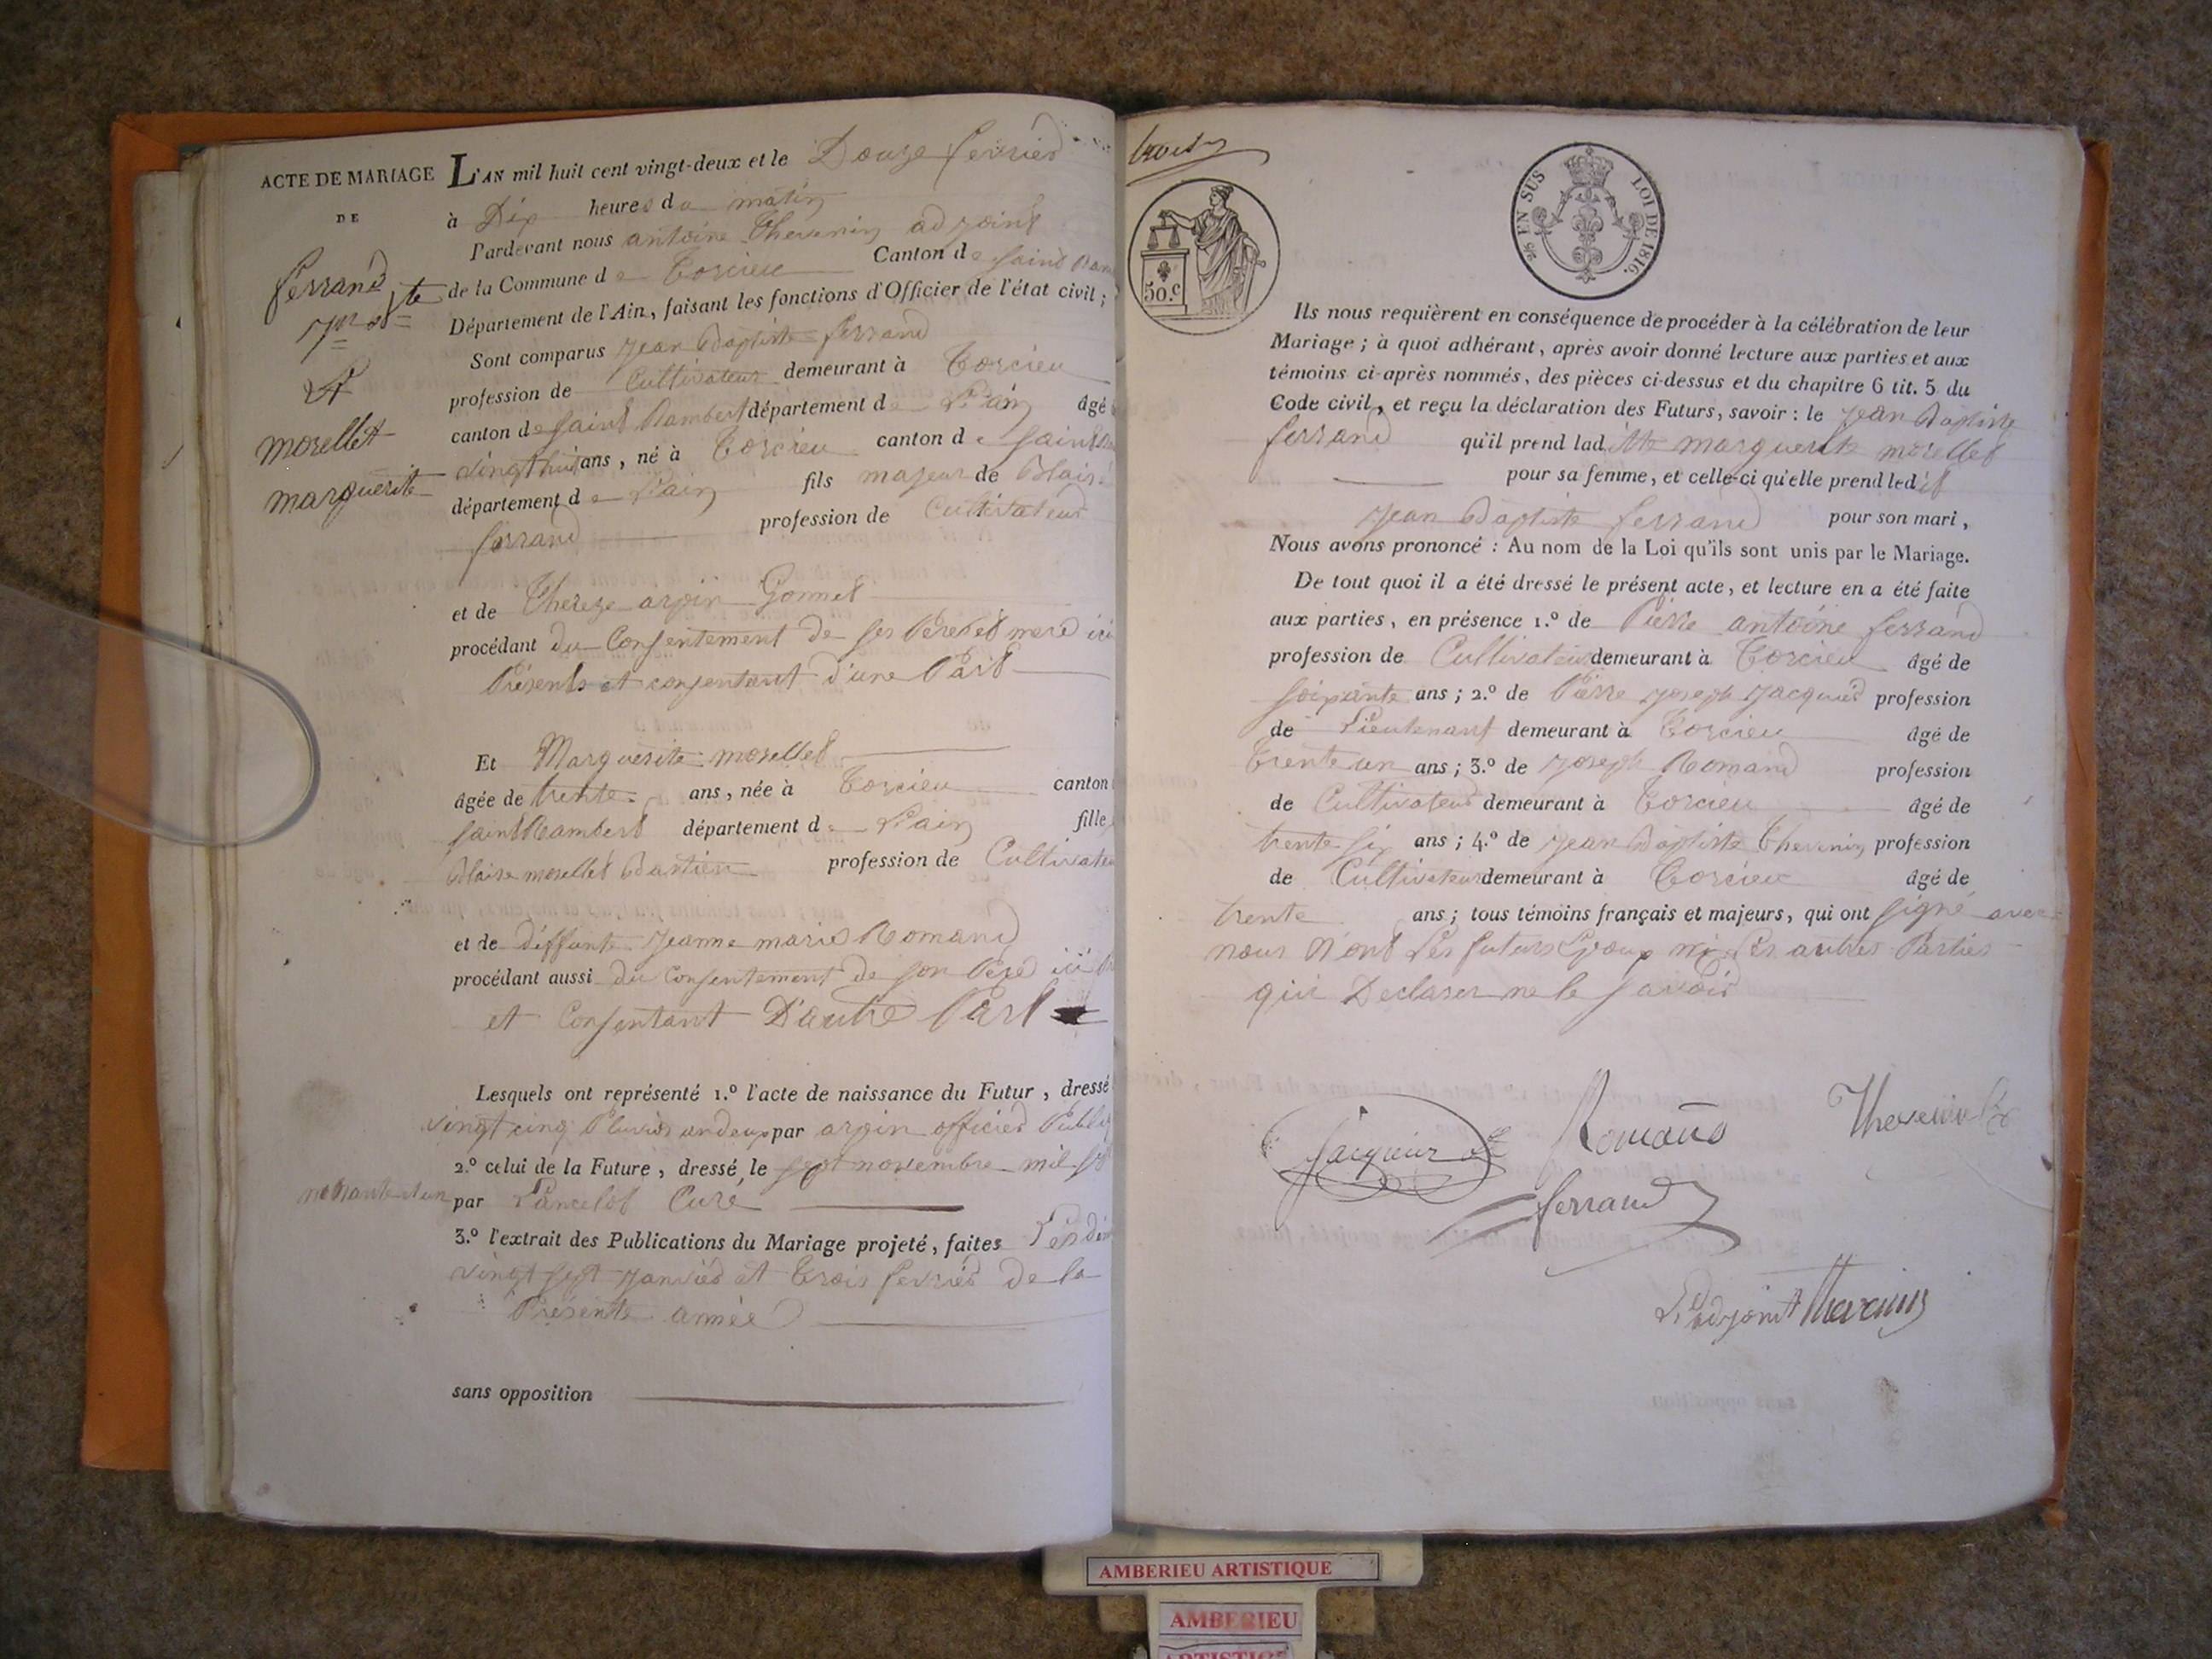 ACTE DE MARIAGE
DE
ferrand
jn bte
Et
morellet
marguerite
L'AN mil huit cent vingt-deux et le Douze fevrier
à Dix heures du matin
Pardevant nous antoine Thevenin adjoint
de la Commune de Torcieu Canton de saint Ram
Département de l'Ain, faisant les fonctions d'Officier de l'état civil;
Sont comparus Jean Baptiste ferrand
profession de Cultivateur demeurant à Torcieu
canton de saint Rambert département de L'ain âgé
vingt huit ans, né à Torcieu canton de saint
département de L'ain fils majeur de Blaise
ferrand profession de Cultivateur
et de Thereze arpin Gonnet
procédant du Consentement de ses Pere et mere ici
Présents et consentant d'une Part
Et Marguerite morellet
âgée de trente ans, née à Torcieu canton
saint Rambert département de L'ain fille
Blaise morellet Bastien profession de Cultivateu
et de deffunte Jeanne marie Romand
procédant aussi du Consentement de son Pere ici
et Consentant D'autre Part
Lesquels ont représenté 1.º l'acte de naissance du Futur, dressé
vingt cinq Pluvios an deux par arpin officier Public
2.º celui de la Future, dressé le sept novembre mil sept
nonante et un par Lancelot Curé
3.º l'extrait des Publications du Mariage projeté, faites Les dim
vingt sept Janvier et trois fevrier de la
Présente année
sans opposition
trois
50.c
2/8 EN SUS
LOI DE 1816.
Ils nous requièrent en conséquence de procéder à la célébration de leur
Mariage; à quoi adhérant, après avoir donné lecture aux parties et aux
témoins ci-après nommés, des pièces ci-dessus et du chapitre 6 tit. 5 du
Code civil, et reçu la déclaration des Futurs, savoir: le Jean Baptiste
ferrand qu'il prend ladite marguerite morellet
pour sa femme, et celle-ci qu'elle prend ledit
Jean Baptiste ferrand pour son mari,
Nous avons prononcé: Au nom de la Loi qu'ils sont unis par le Mariage.
De tout quoi il a été dressé le présent acte, et lecture en a été faite
aux parties, en présence 1.º de Pierre antoine ferrand
profession de Cultivateur demeurant à Torcieu âgé de
soixante ans; 2.º de Pierre Joseph Jacquier profession
de Lieutenant demeurant à Torcieu âgé de
Trente un ans; 3.º de Joseph Romand profession
de Cultivateur demeurant à Torcieu âgé de
trente six ans; 4.º de Jean Baptiste Thevenin profession
de Cultivateur demeurant à Torcieu âgé de
trente ans; tous témoins français et majeurs, qui ont signé avec
nous N'ont les futurs Epoux ni les autres Parties
qui Declarer ne le savoir
Jacquier
Romand
Thevenin
ferrand
L'adjoint Thevenin
AMBERIEU ARTISTIQUE
AMBERIEU
ARTISTIQUE